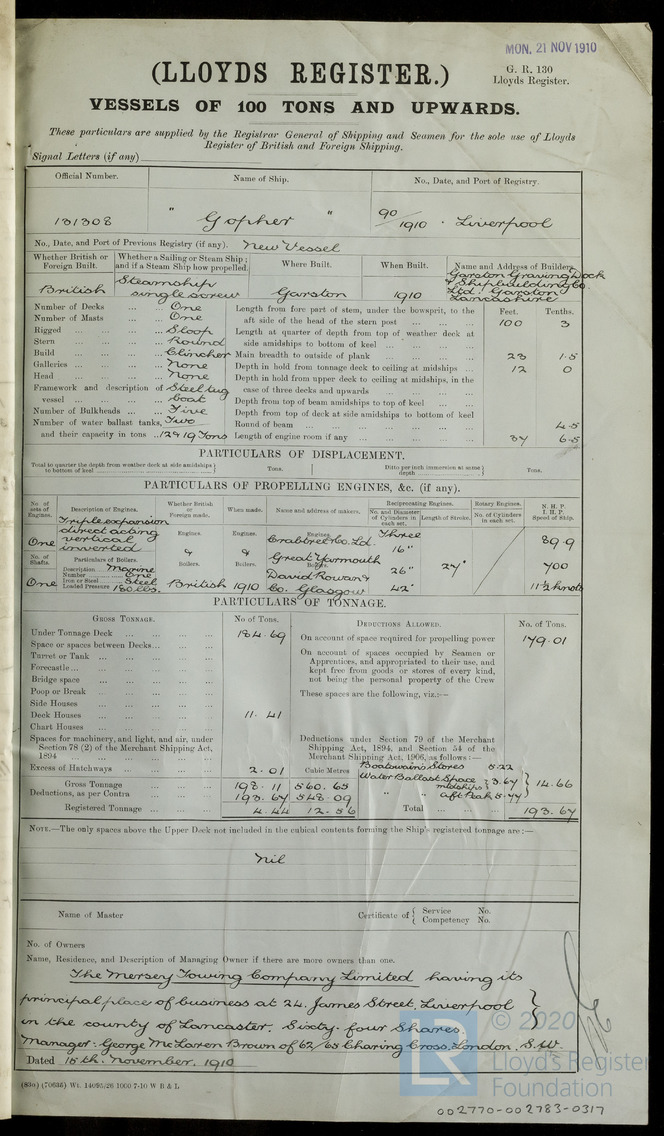 MON. 21 NOV 1910
(LLOYDS REGISTER.)
G. R. 130
Lloyds Register.
VESSELS OF 100 TONS AND UPWARDS.
These particulars are supplied by the Registrar General of Shipping and Seamen for the sole use of Lloyds
Register of British and Foreign Shipping.
Signal Letters (if any)
Official Number. Name of Ship. No., Date, and Port of Registry.
131308 " Gopher " 90/1910 . Liverpool
No., Date, and Port of Previous Registry (if any). New Vessel
Whether British or Foreign Built. Whether a Sailing or Steam Ship; and if a Steam Ship how propelled. Where Built. When Built. Name and Address of Builders.
British Steamship single screw Garston 1910 Garston Graving Dock & Shipbuilding Co Ltd. Garston Lancashire
Number of Decks ... ... One
Number of Masts ... ... One
Rigged ... ... ... Sloop
Stern ... ... ... Round
Build ... ... ... Clincher
Galleries ... ... ... None
Head ... ... ... None
Framework and description of vessel ... ... Steel tug boat
Number of Bulkheads ... ... Five
Number of water ballast tanks, Two
and their capacity in tons ... 12 & 19 Tons
Feet. Tenths.
Length from fore part of stem, under the bowsprit, to the aft side of the head of the stern post ... 100 3
Length at quarter of depth from top of weather deck at side amidships to bottom of keel ...
Main breadth to outside of plank ... 23 1.5
Depth in hold from tonnage deck to ceiling at midships ... 12 0
Depth in hold from upper deck to ceiling at midships, in the case of three decks and upwards ...
Depth from top of beam amidships to top of keel ...
Depth from top of deck at side amidships to bottom of keel
Round of beam ... 4.5
Length of engine room if any ... 37 6.5
PARTICULARS OF DISPLACEMENT.
Total to quarter the depth from weather deck at side amidships to bottom of keel ... Tons. Ditto per inch immersion at same depth ... Tons.
PARTICULARS OF PROPELLING ENGINES, &c. (if any).
No. of sets of Engines. Description of Engines. Whether British or Foreign made. When made. Name and address of makers. Reciprocating Engines. Rotary Engines. N. H. P.
I. H. P.
Speed of Ship.
No. and Diameter of Cylinders in each set. Length of Stroke. No. of Cylinders in each set.
One Triple expansion direct acting vertical inverted
Engines. Engines. Engines.
Crabtree & Co. Ld. Great Yarmouth
Three 16" 26" 42" 27" 89.9
No. of Shafts. Particulars of Boilers.
& & Boilers. Boilers. Boilers.
Description Marine
Number One
Iron or Steel Steel
Loaded Pressure 180 lbs.
One British 1910 David Rowan & Co. Glasgow
700
11½ knots
PARTICULARS OF TONNAGE.
GROSS TONNAGE. No. of Tons. DEDUCTIONS ALLOWED. No. of Tons.
Under Tonnage Deck ... 184.69
Space or spaces between Decks ...
Turret or Tank ...
Forecastle ...
Bridge space ...
Poop or Break ...
Side Houses ...
Deck Houses ... 11.41
Chart Houses ...
Spaces for machinery, and light, and air, under Section 78 (2) of the Merchant Shipping Act, 1894 ...
Excess of Hatchways ... 2.01 Cubic Metres
Gross Tonnage ... 198.11 560.65
Deductions, as per Contra ... 193.67 548.09
Registered Tonnage ... 4.44 12.56
On account of space required for propelling power 179.01
On account of spaces occupied by Seamen or Apprentices, and appropriated to their use, and kept free from goods or stores of every kind, not being the personal property of the Crew
These spaces are the following, viz.:—
Deductions under Section 79 of the Merchant Shipping Act, 1894, and Section 54 of the Merchant Shipping Act, 1906, as follows:—
Boatswain's Stores 5.22
Water Ballast Space midships 3.67 14.66
" " aft Peak 5.77
Total ... 193.67
NOTE.—The only spaces above the Upper Deck not included in the cubical contents forming the Ship's registered tonnage are:—
Nil
Name of Master Certificate of Service No.
Competency No.
No. of Owners
Name, Residence, and Description of Managing Owner if there are more owners than one.
The Mersey Towing Company Limited having its
principal place of business at 24. James Street, Liverpool
in the county of Lancaster. Sixty-four Shares
Manager: George McLaren Brown of 62/65 Charing Cross, London. S.W.
Dated 15th. November. 1910
(83a) (70635) Wt. 14095/26 1000 7-10 W B & L
LR
© 2020
Lloyd's Register
Foundation
002770-002783-0317